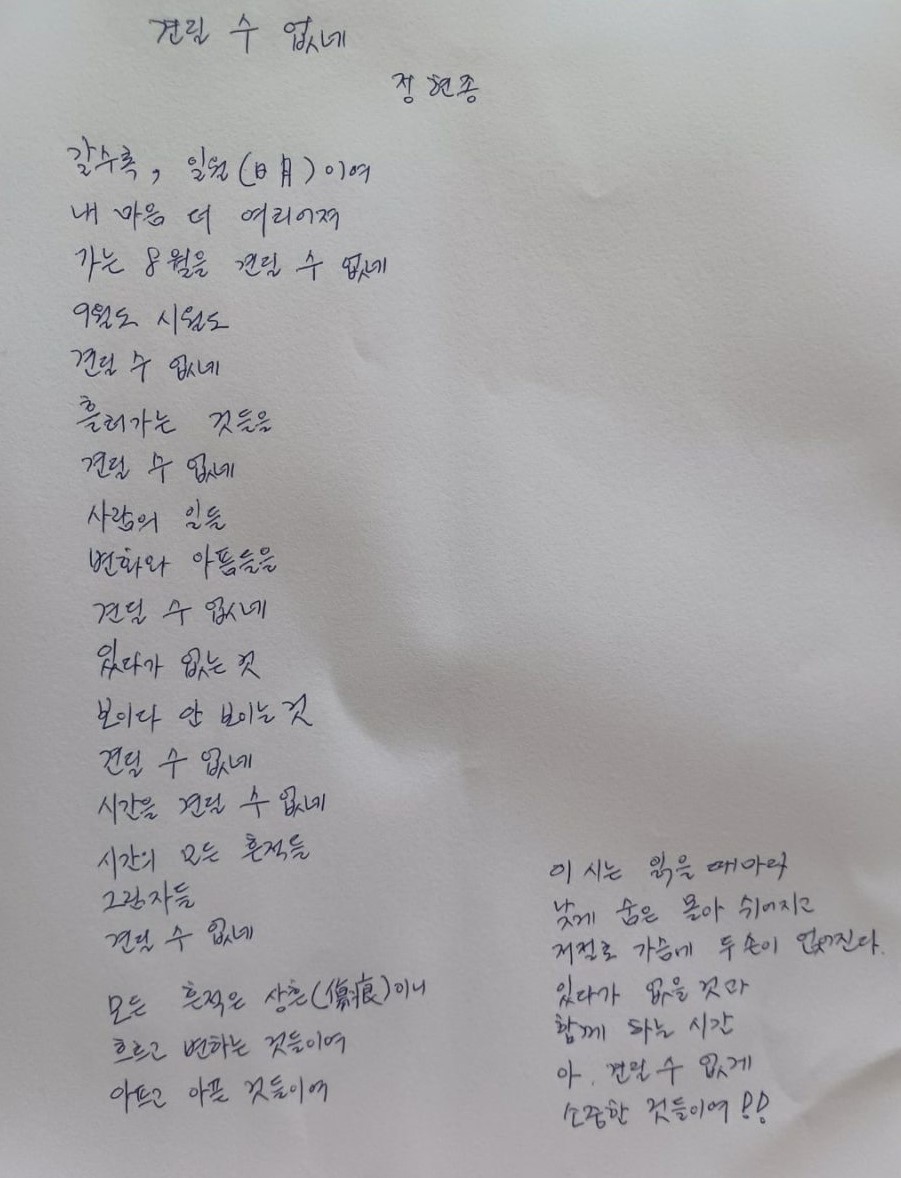 견딜 수 없네
정현종
갈수록, 일월(日月)이여
내 마음 더 여리어져
가는 8월을 견딜 수 없네
9월도 시월도
견딜 수 없네
흘러가는 것들을
견딜 수 없네
사람의 일들
변화와 아픔들을
견딜 수 없네
있다가 없는 것
보이다 안 보이는 것
견딜 수 없네
시간을 견딜 수 없네
시간의 모든 흔적들
그림자들
견딜 수 없네
모든 흔적은 상흔(傷痕)이니
흐르고 변하는 것들이여
아프고 아픈 것들이여
이 시는 읽을 때마다
낮게 숨은 몰아 쉬어지고
저절로 가슴에 두 손이 얹어진다.
있다가 없을 것과
함께 하는 시간
아. 견딜 수 없게
소중한 것들이여!!